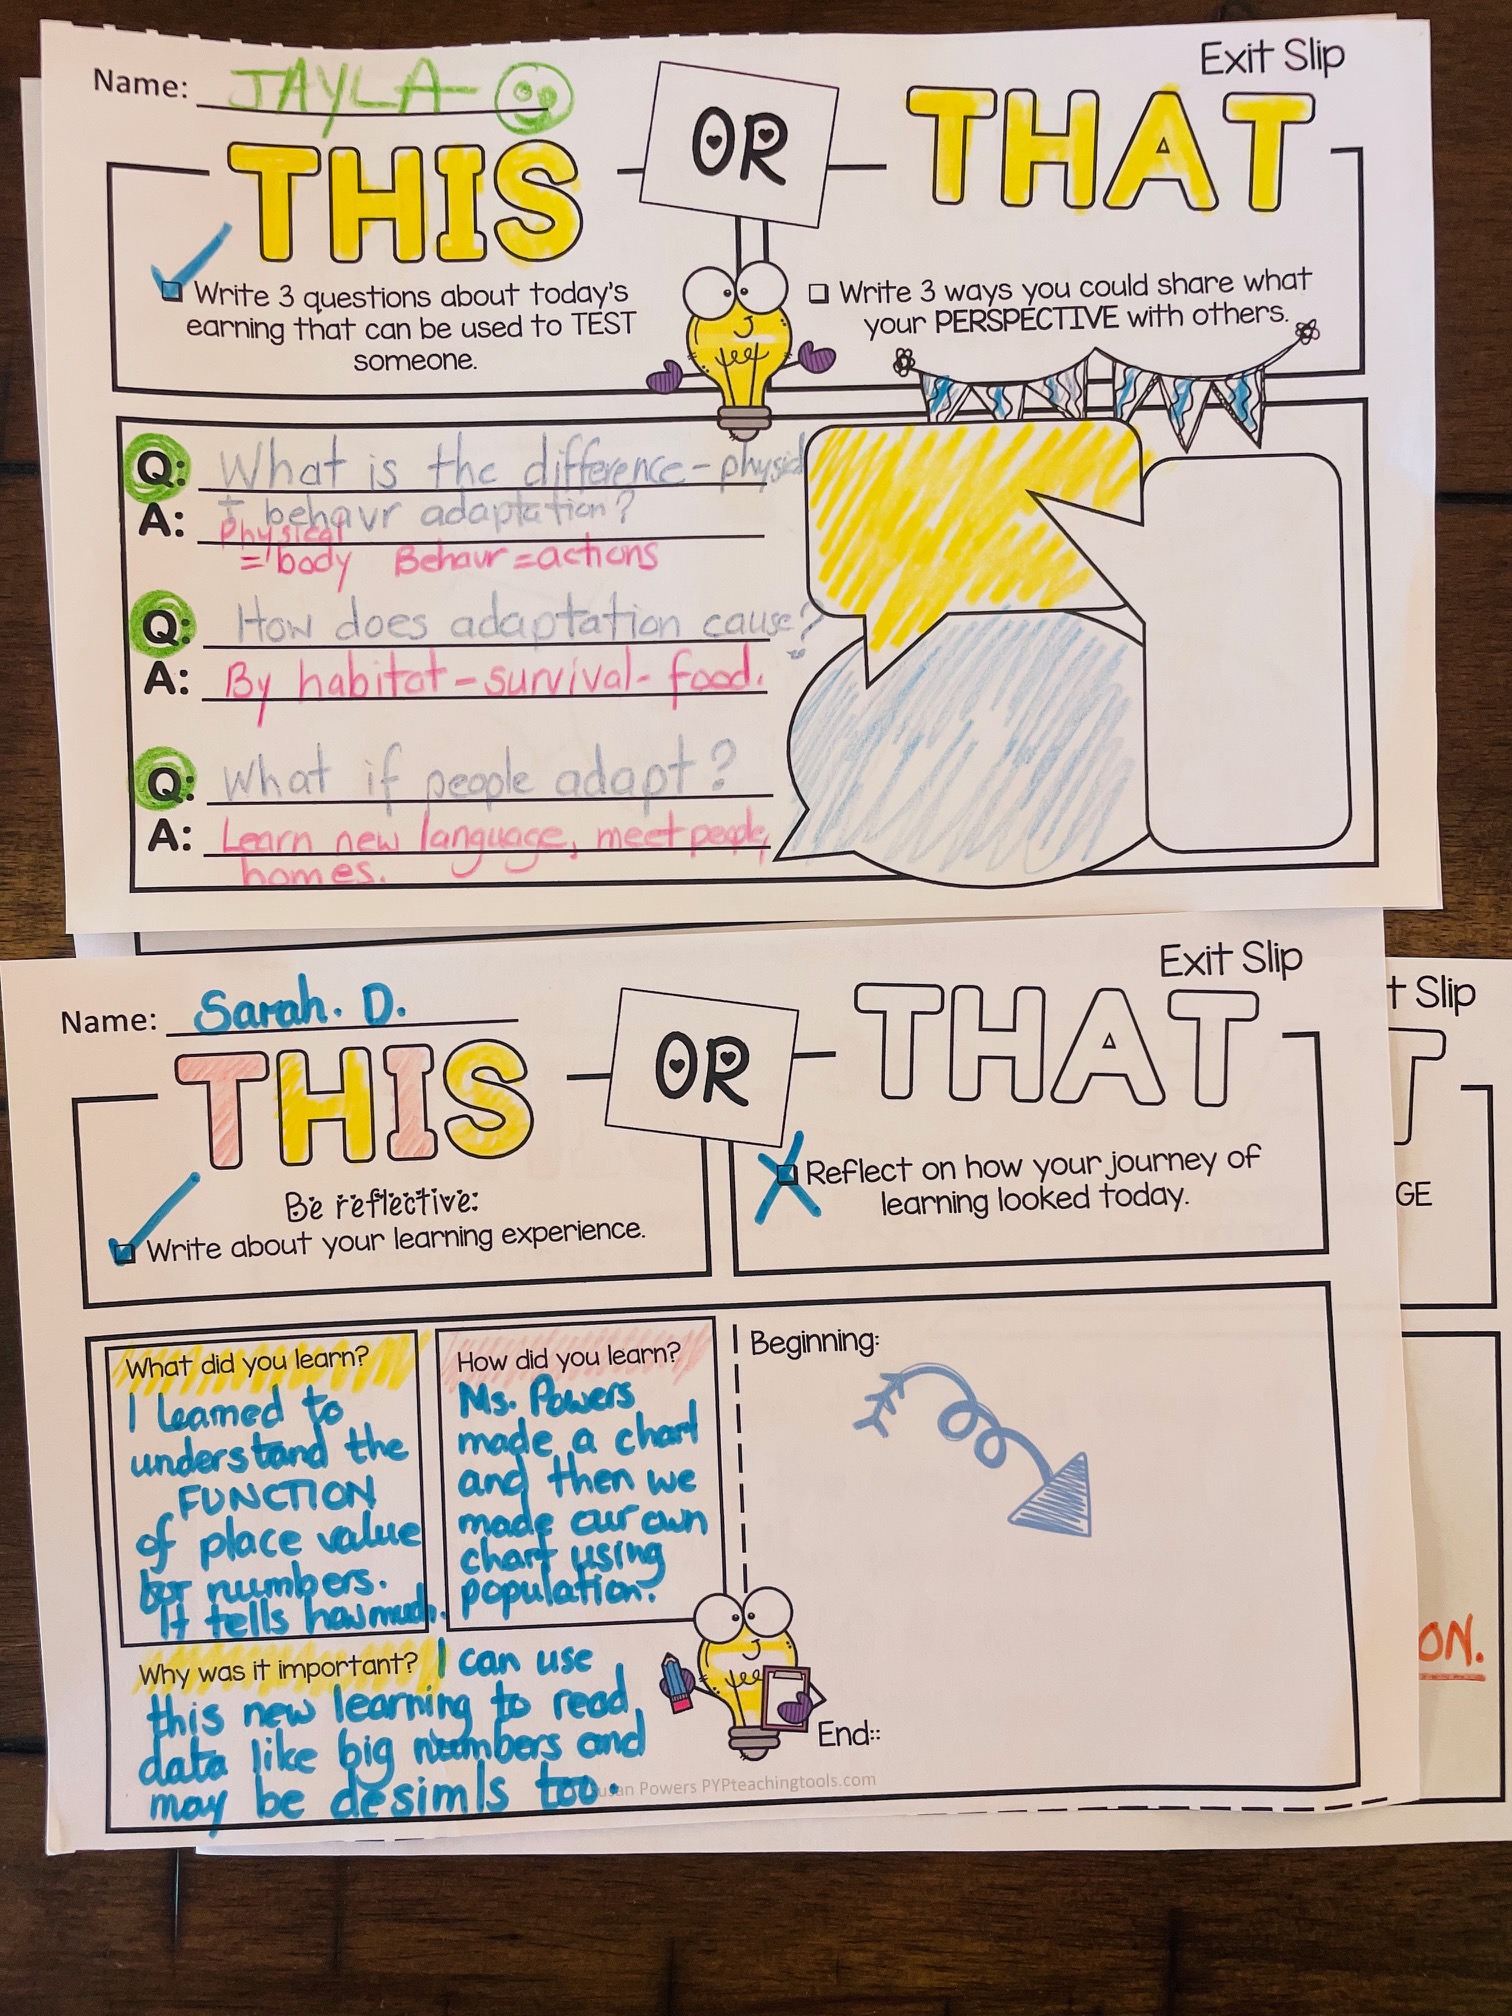 Exit Slip
Name: JAYLA
THIS OR THAT
Write 3 questions about today's
earning that can be used to TEST
someone.
Write 3 ways you could share what
your PERSPECTIVE with others.
Q: What is the difference - physicl
+ behavr adaptation?
A: Physical
= body Behavr = actions
Q: How does adaptation cause?
A: By habitat - survival - food.
Q: What if people adapt?
A: Learn new language, meet people,
homes.
Exit Slip
Name: Sarah. D.
THIS OR THAT
Be reflective:
Write about your learning experience.
Reflect on how your journey of
learning looked today.
What did you learn?
I learned to
understand the
FUNCTION
of place value
for numbers.
It tells how much.
How did you learn?
Ms. Powers
made a chart
and then we
made our own
chart using
population.
Why was it important? I can use
this new learning to read
data like big numbers and
may be desimls too.
Beginning:
End::
usan Powers PYPteachingtools.com
t Slip
T
GE
ON.